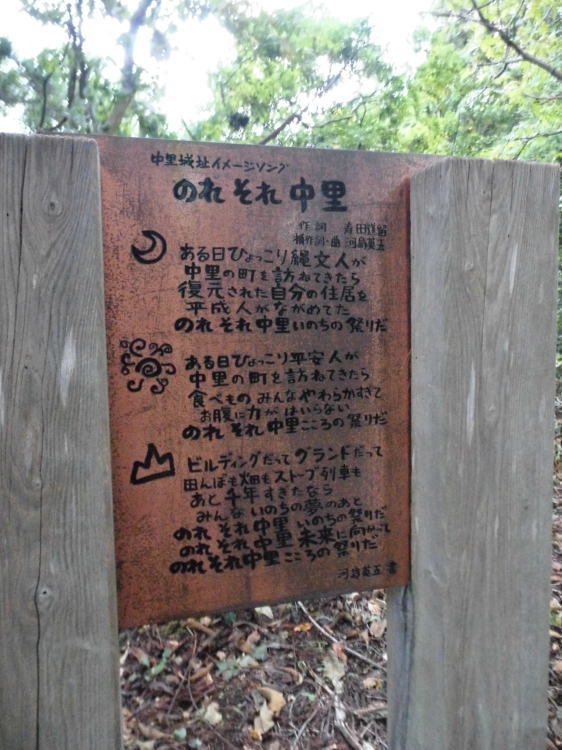 中里城址イメージソング
のれそれ中里
作詞 寿田
補作詞・曲 河島英五
ある日ひょっこり縄文人が
中里の町を訪ねてきたら
復元された自分の住居を
平成人がながめてた
のれそれ中里いのちの祭りだ
ある日ひょっこり平安人が
中里の町を訪ねてきたら
食べものみんなやわらかすぎて
お腹に力がはいらない
のれそれ中里こころの祭りだ
ビルディングだってグランドだって
田んぼも畑もストーブ列車も
あと千年すぎたなら
みんないのちの夢のあと
のれそれ中里いのちの祭りだ
のれそれ中里未来に向かって
のれそれ中里こころの祭りだ
河島英五 書